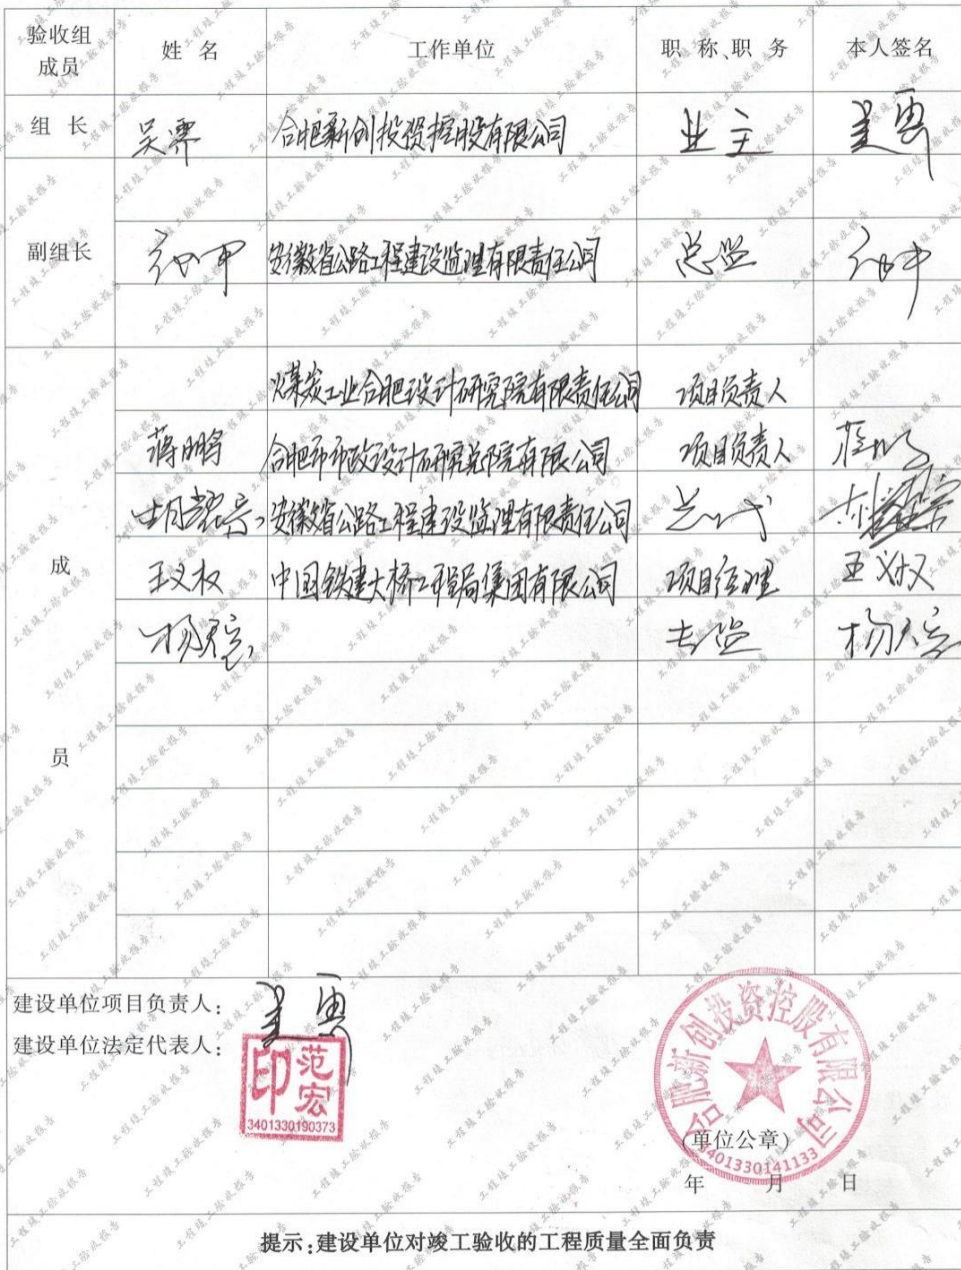 验收组成员 姓 名 工作单位 职 称、职 务 本人签名
组 长 吴霁 合肥新创投资控股有限公司 业主
副组长 安徽省公路工程建设监理有限责任公司 总监
煤炭工业合肥设计研究院有限责任公司 项目负责人
蒋鹏 合肥市市政设计研究总院有限公司 项目负责人
成 胡 安徽省公路工程建设监理有限责任公司 总代
王义权 中国铁建大桥工程局集团有限公司 项目经理 王义权
杨 专监 杨
员
建设单位项目负责人：
建设单位法定代表人：
范宏印
3401330190373
合肥新创投资控股有限公司
(单位公章)
3401330141133
年 月 日
提示：建设单位对竣工验收的工程质量全面负责
工程竣工验收报告